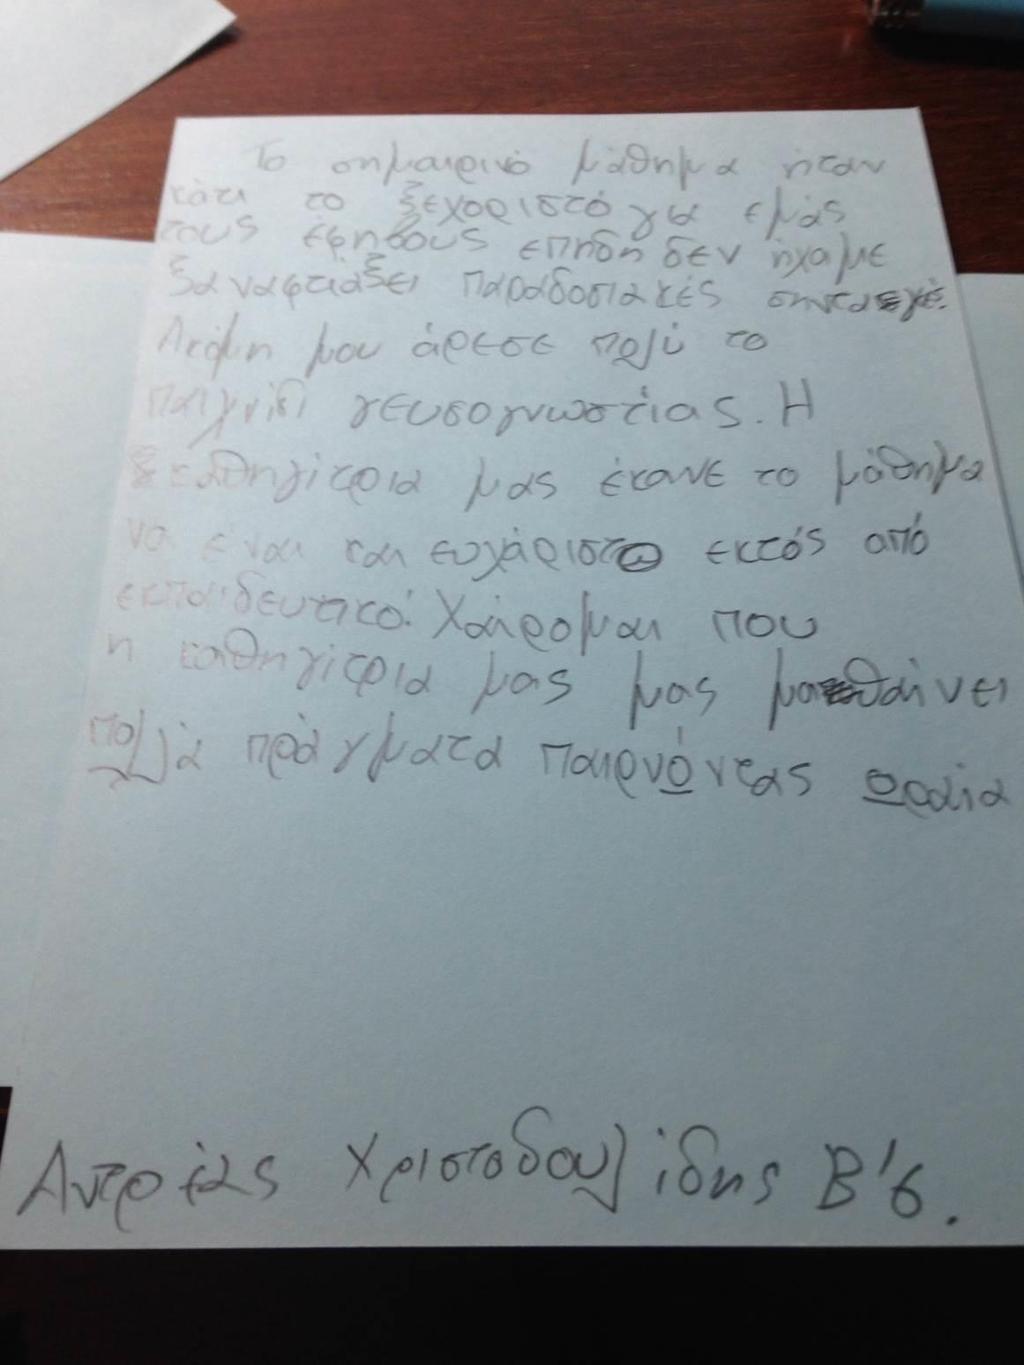 Το σημαιρινό μάθημα ήταν
κάτι το ξεχοριστό για εμάς
τους εφήβους επηδη δεν ήχαμε
ξαναφτιάξει παραδοσιακές
Ακόμη μου άρεσε πολύ το
παιχνίδι γευσογνωστίας. Η
καθηγίτρια μας έκανε το μάθημα
να έιναι και ευχάριστο εκτός από
εκπαιδευτικό. Χαίρομαι που
η καθηγίτρια μας μας μαθαίνει
πολλά πράγματα παιρνόντας οραία
Αντρέας Χριστοδουλίδης Β'6.